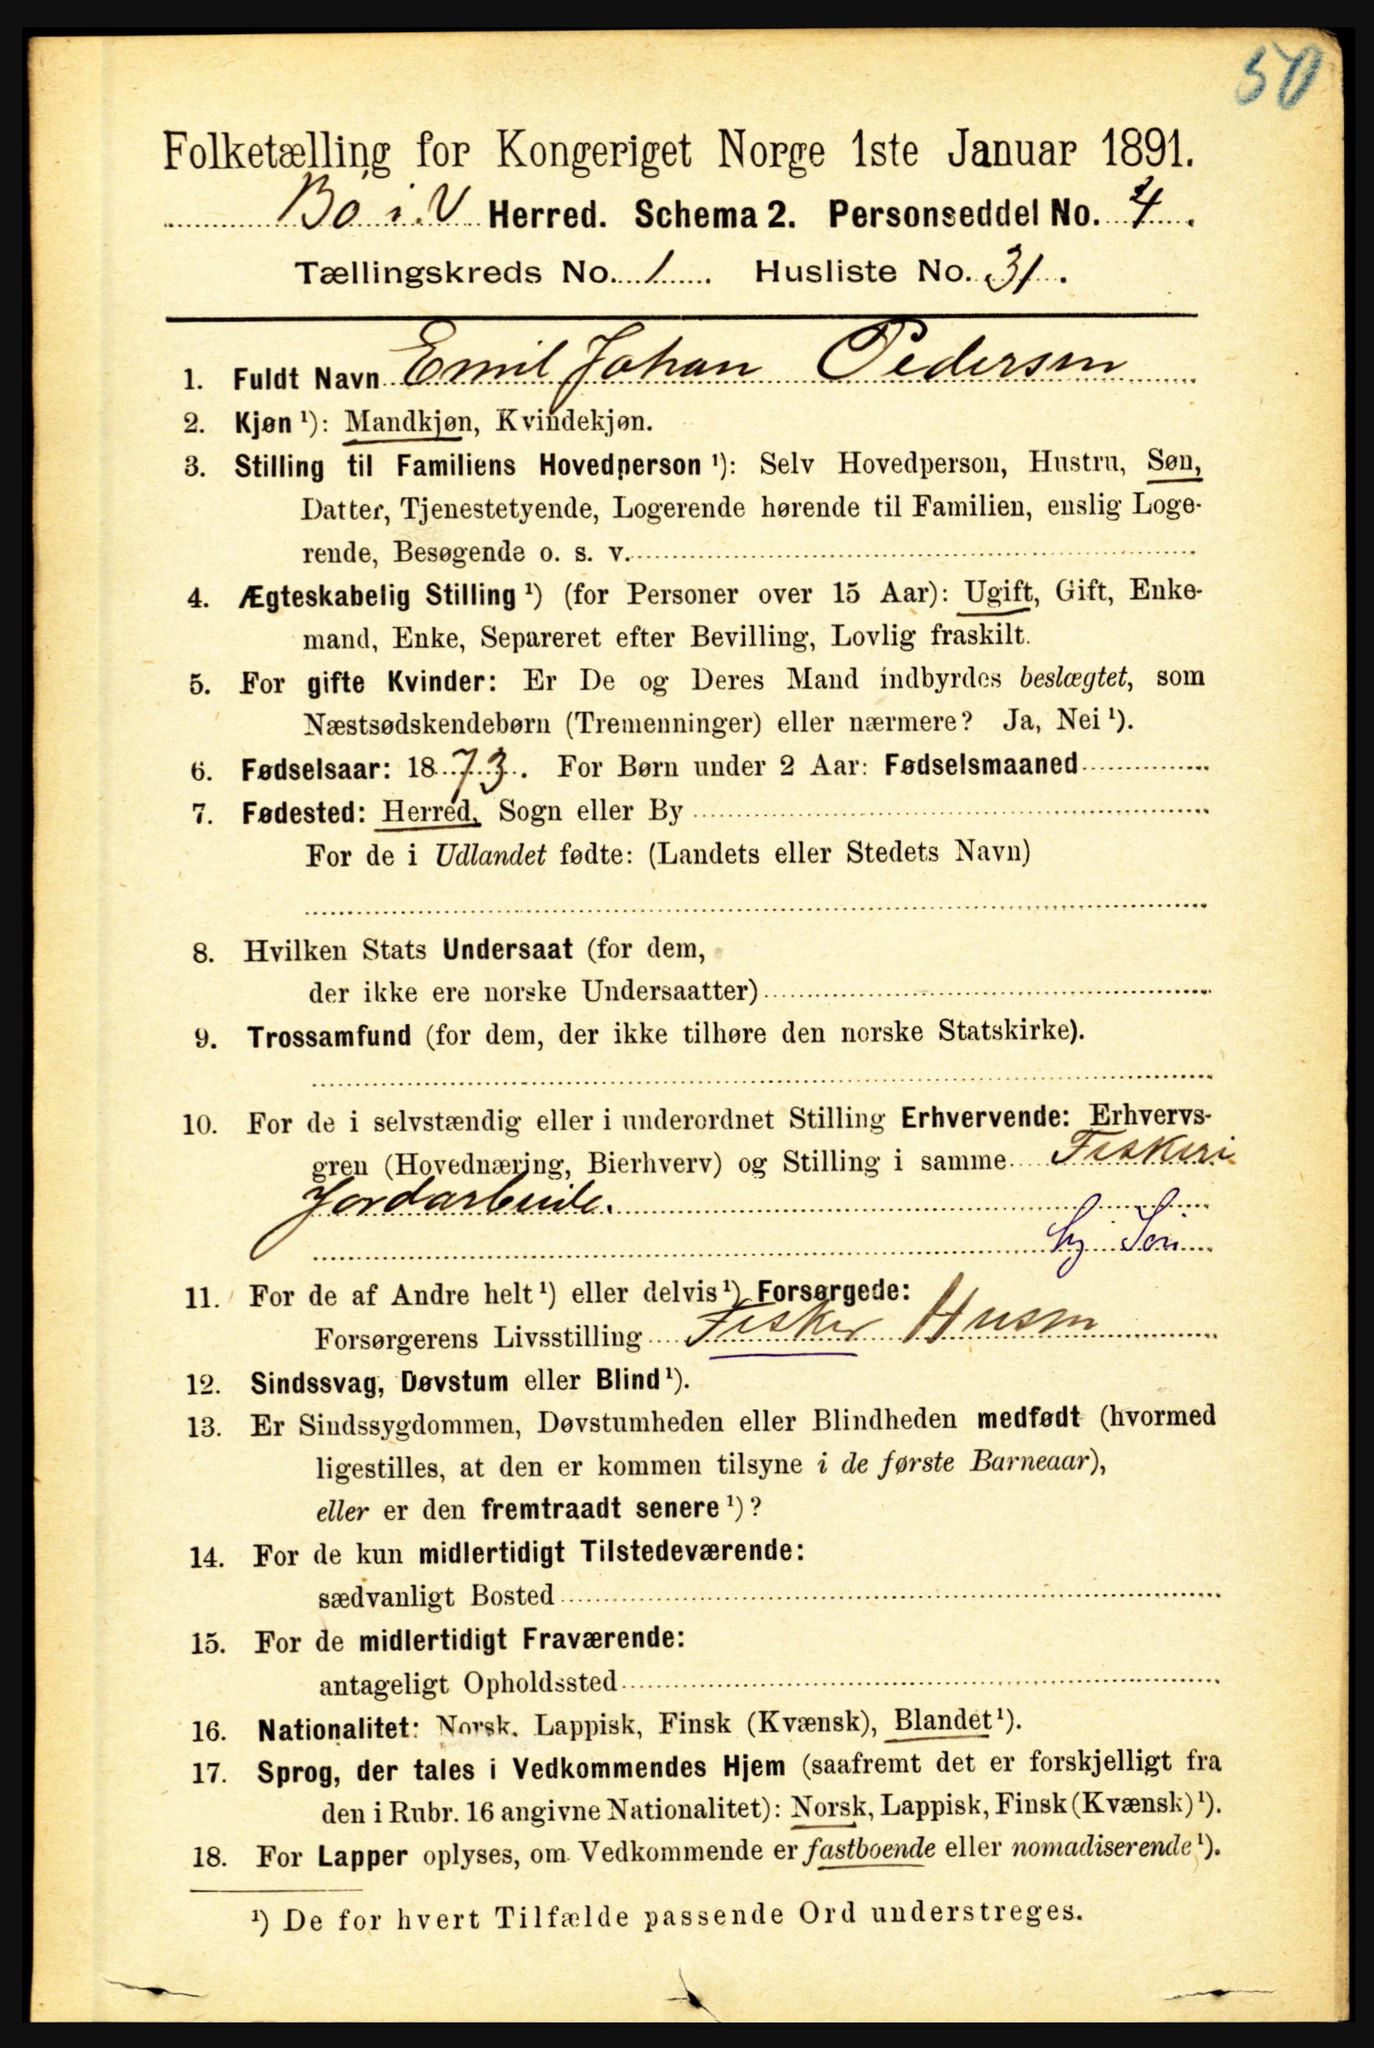 50
Folketælling for Kongeriget Norge 1ste Januar 1891.
Bö i V Herred. Schema 2. Personseddel No. 4.
Tællingskreds No. 1. Husliste No. 31.
1. Fuldt Navn Emil Johan Pedersen
2. Kjøn ¹): Mandkjøn, Kvindekjøn.
3. Stilling til Familiens Hovedperson ¹): Selv Hovedperson, Hustru, Søn,
Datter, Tjenestetyende, Logerende hørende til Familien, enslig Loge-
rende, Besøgende o. s. v.
4. Ægteskabelig Stilling ¹) (for Personer over 15 Aar): Ugift, Gift, Enke-
mand, Enke, Separeret efter Bevilling, Lovlig fraskilt.
5. For gifte Kvinder: Er De og Deres Mand indbyrdes beslægtet, som
Næstsødskendebørn (Tremenninger) eller nærmere? Ja, Nei ¹).
6. Fødselsaar: 1873. For Børn under 2 Aar: Fødselsmaaned
7. Fødested: Herred, Sogn eller By
For de i Udlandet fødte: (Landets eller Stedets Navn)
8. Hvilken Stats Undersaat (for dem,
der ikke ere norske Undersaatter)
9. Trossamfund (for dem, der ikke tilhøre den norske Statskirke).
10. For de i selvstændig eller i underordnet Stilling Erhvervende: Erhvervs-
gren (Hovednæring, Bierhverv) og Stilling i samme Fiskeri
Jordarbeide.
Søn
11. For de af Andre helt ¹) eller delvis ¹) Forsørgede:
Forsørgerens Livsstilling Fisker Husm
12. Sindssvag, Døvstum eller Blind ¹).
13. Er Sindssygdommen, Døvstumheden eller Blindheden medfødt (hvormed
ligestilles, at den er kommen tilsyne i de første Barneaar),
eller er den fremtraadt senere ¹)?
14. For de kun midlertidigt Tilstedeværende:
sædvanligt Bosted
15. For de midlertidigt Fraværende:
antageligt Opholdssted
16. Nationalitet: Norsk, Lappisk, Finsk (Kvænsk), Blandet ¹).
17. Sprog, der tales i Vedkommendes Hjem (saafremt det er forskjelligt fra
den i Rubr. 16 angivne Nationalitet): Norsk, Lappisk, Finsk (Kvænsk) ¹).
18. For Lapper oplyses, om Vedkommende er fastboende eller nomadiserende ¹).
¹) De for hvert Tilfælde passende Ord understreges.